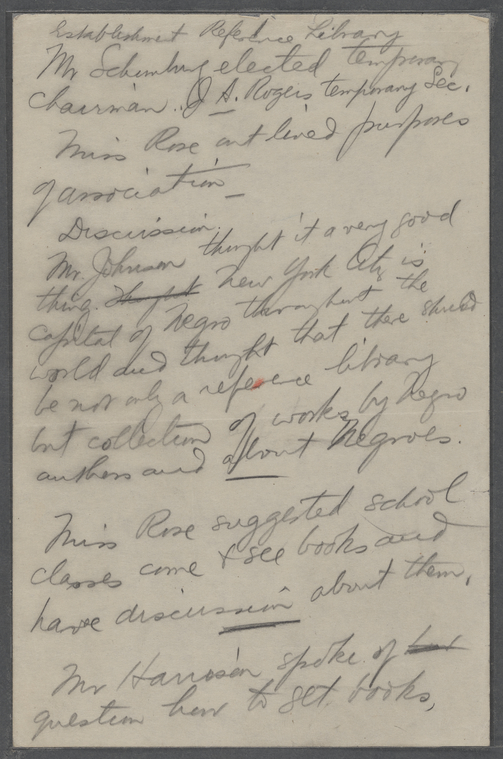 Establishment Reference Library
Mr Schomburg elected temporary
chairman. J A. Rogers temporary Sec.
Miss Rose outlined purposes
of association
Discussion.
Mr. Johnson thought it a very good
thing. Thought New York City is
capital of Negro throughout the
world and thought that there should
be not only a reference library
but collection of works by Negro
authors and about Negroes.
Miss Rose suggested school
classes come & see books and
have discussion about them.
Mr Harrison spoke of
question how to get books,